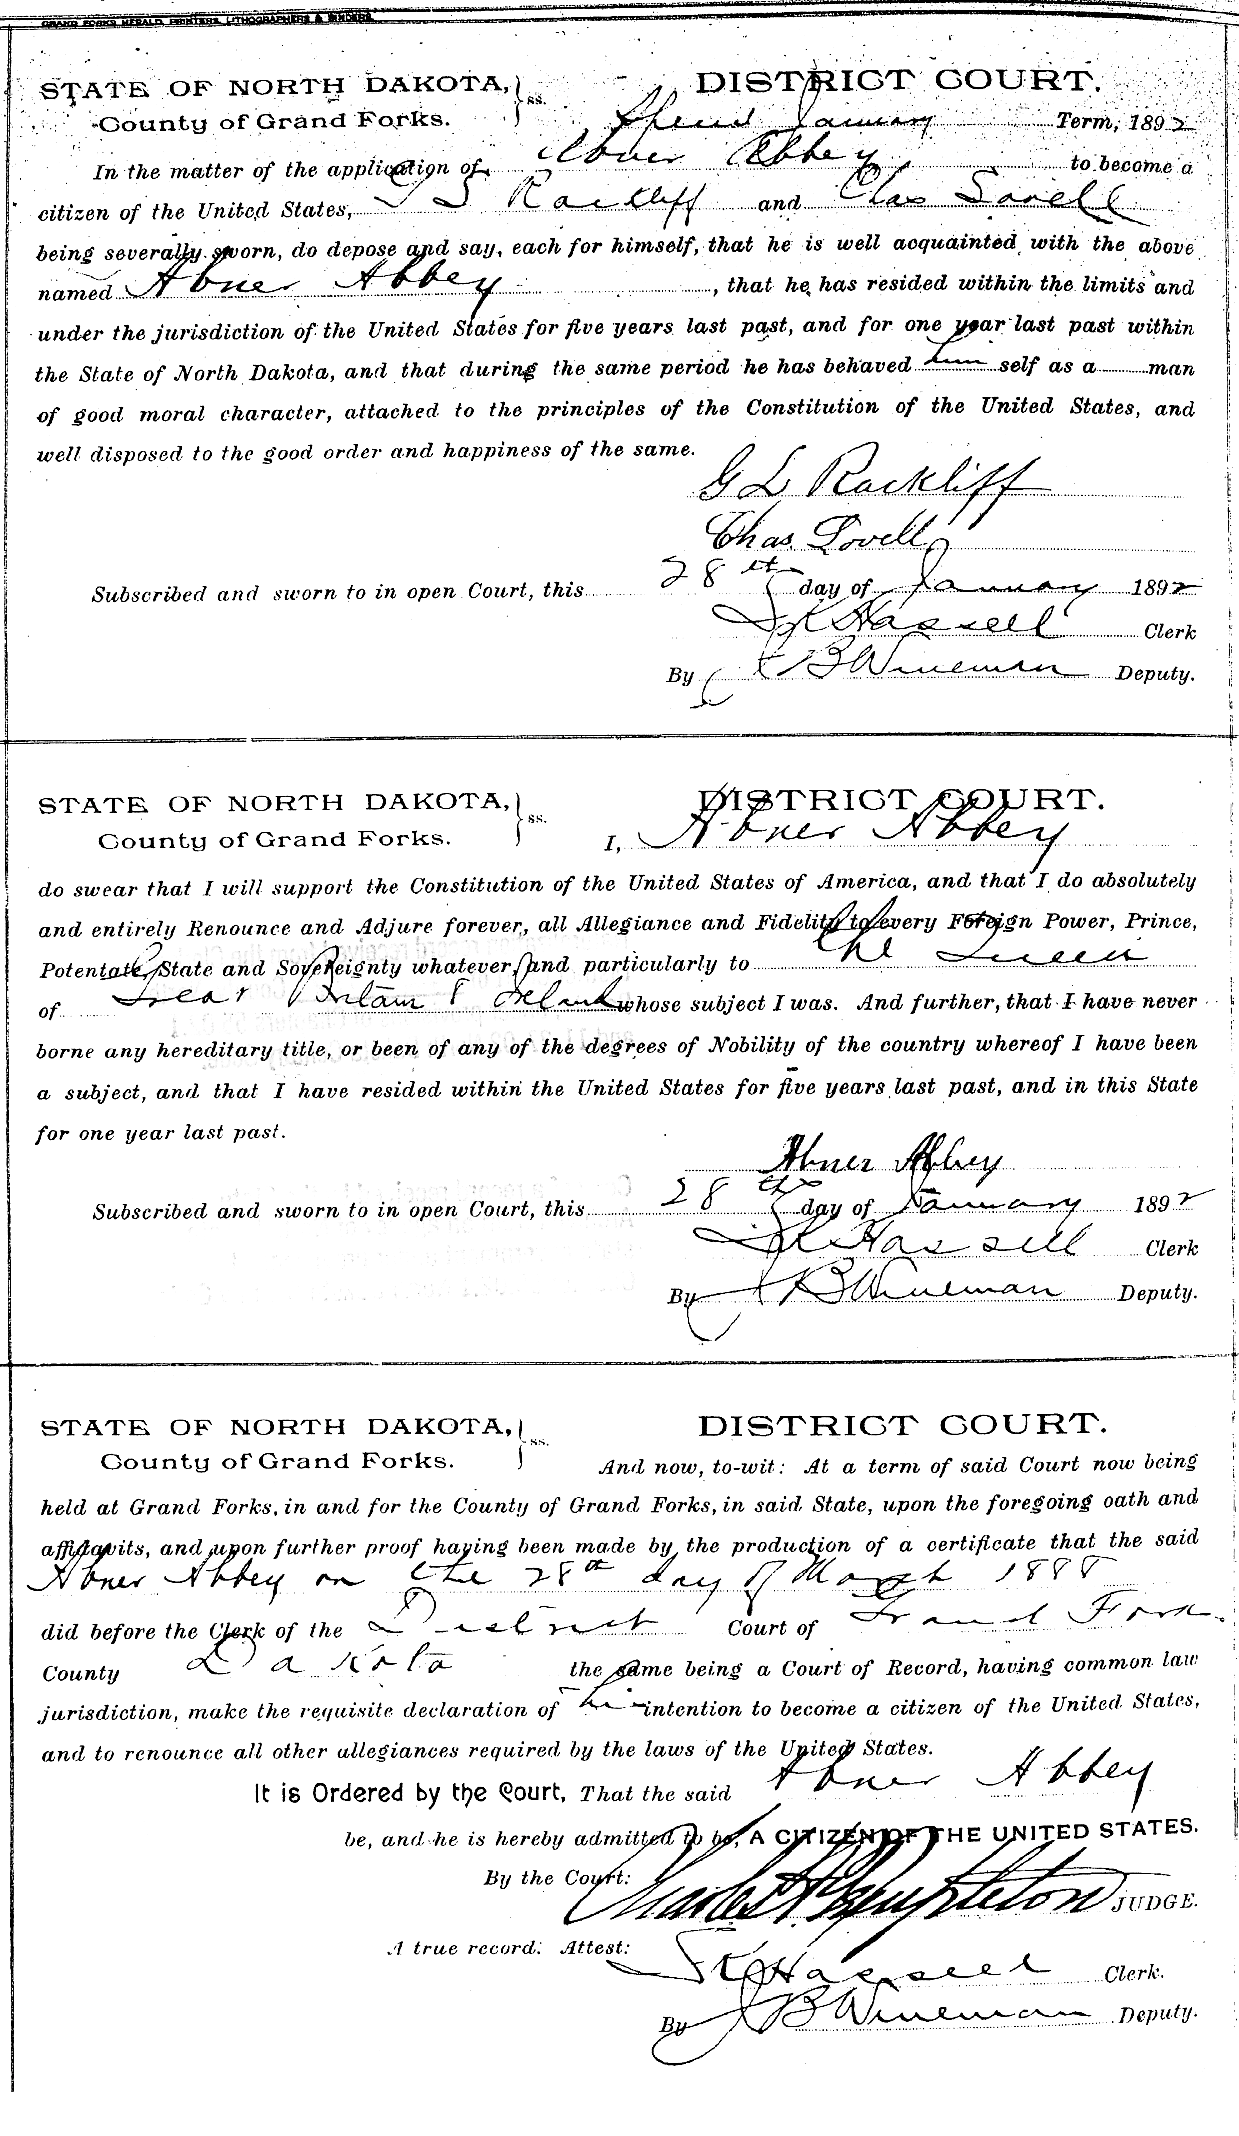 GRAND FORKS HERALD, PRINTERS, LITHOGRAPHERS & BINDERS.
STATE OF NORTH DAKOTA, } ss. DISTRICT COURT.
County of Grand Forks. January Term, 1892
In the matter of the application of Abner Abbey to become a
citizen of the United States, Rackliff and Chas Lovell
being severally sworn, do depose and say, each for himself, that he is well acquainted with the above
named Abner Abbey, that he has resided within the limits and
under the jurisdiction of the United States for five years last past, and for one year last past within
the State of North Dakota, and that during the same period he has behaved him self as a man
of good moral character, attached to the principles of the Constitution of the United States, and
well disposed to the good order and happiness of the same.
G L Rackliff
Chas. Lovell
Subscribed and sworn to in open Court, this 28th day of January 1892
Hassell Clerk
By B Wineman Deputy.
STATE OF NORTH DAKOTA, } ss. DISTRICT COURT.
County of Grand Forks. I, Abner Abbey
do swear that I will support the Constitution of the United States of America, and that I do absolutely
and entirely Renounce and Adjure forever, all Allegiance and Fidelity to every Foreign Power, Prince,
Potentate, State and Sovereignty whatever, and particularly to the Queen
of Great Britain & Ireland whose subject I was. And further, that I have never
borne any hereditary title, or been of any of the degrees of Nobility of the country whereof I have been
a subject, and that I have resided within the United States for five years last past, and in this State
for one year last past.
Abner Abbey
Subscribed and sworn to in open Court, this 28th day of January 1892
Hassell Clerk
By B Wineman Deputy.
STATE OF NORTH DAKOTA, } ss. DISTRICT COURT.
County of Grand Forks. And now, to-wit: At a term of said Court now being
held at Grand Forks, in and for the County of Grand Forks, in said State, upon the foregoing oath and
affidavits, and upon further proof having been made by the production of a certificate that the said
Abner Abbey on the 28th day of March 1888
did before the Clerk of the District Court of Grand Forks
County Dakota the same being a Court of Record, having common law
jurisdiction, make the requisite declaration of his intention to become a citizen of the United States,
and to renounce all other allegiances required by the laws of the United States.
It is Ordered by the Court, That the said Abner Abbey
be, and he is hereby admitted to be, A CITIZEN OF THE UNITED STATES.
By the Court: Charles F Templeton JUDGE.
A true record. Attest: Hassell Clerk.
By B Wineman Deputy.